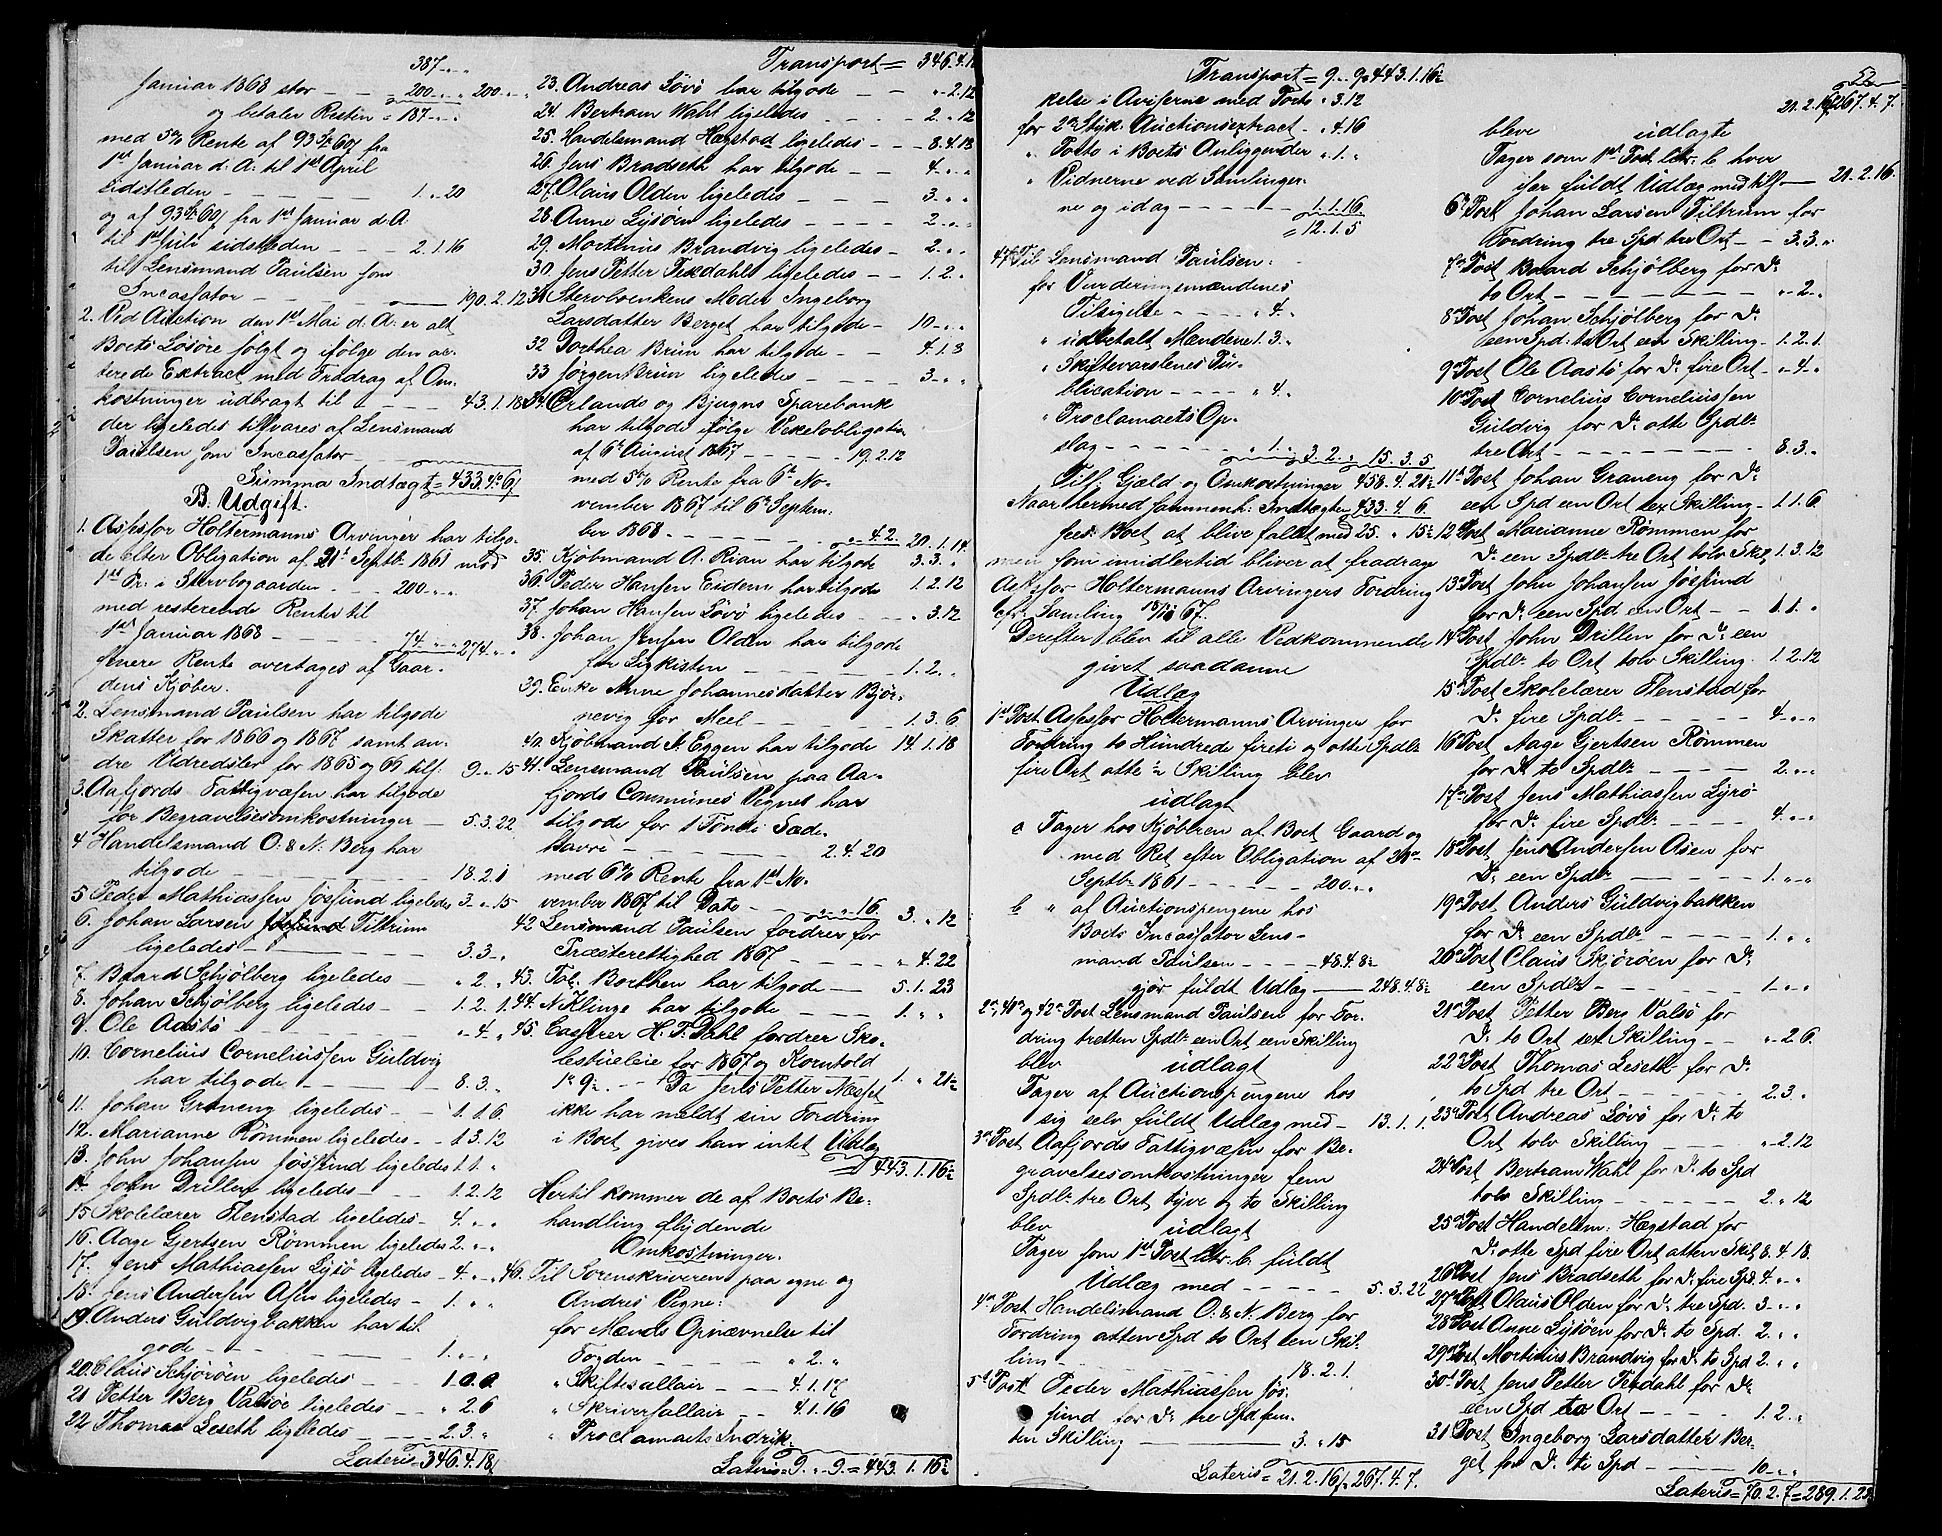 387 - " "
Januar 1868 stor - - 200 " " 200 " "
og betaler Resten = 187 " "
med 5% Rente af 93 Sp. 60 fra
1ste Januar d: A: til 1ste April
sidstleden - - - - 1. " 20
og af 93 Sp. 60 fra 1ste Januar d. A.
til 1ste Juli sidstleden - - - 2.1.16
til Lensmand Paulsen som
Incassator - - - 190.2.12
2. Ved Auction den 1ste Mai d. A: er alt
Boets Løsøre solgt og ifølge den
Extract med Fradrag af Om-
kostninger udbragt til - - - 43.1.18
der ligeledes tilsvares af Lensmand
Paulsen som Incassator
Summa Indtægt = 433.4.6
B. Udgift.
1. Assessor Holtermanns Arvinger har tilgo-
de efter Obligation af 21de Septbr 1861 med
1ste Pr: i Stervbogaarden - - - 200 " "
med resterende Renter til
1ste Januar 1868 - - - 74 " " 274 " "
senere Rente overtages af Gaar-
dens Kjøber.
2. Lensmand Paulsen har tilgode
Skatter for 1866 og 1867 samt an-
dre Udredsler for 1865 og 66 tils: 9. " 15
3. Aafjords Fattigvæsen har tilgode
for Begravelsesomkostninger - 5.3.22
4 Handelsmand O. & N. Berg har
tilgode - - - 18.2.1
5 Peder Mathiassen Jøssund ligeledes 3 - " 15
6. Johan Larsen Tiltrum
ligeledes - - - 3.3. "
7. Baard Schjølberg ligeledes - " 2. "
8. Johan Schjølberg ligeledes - 1.2.1
9. Ole Aastø - - - " 4 "
10. Cornelius Corneliussen Guldvig
har tilgode - - - 8.3. "
11. Johan Graneng ligeledes - - 1.1.6
12. Marianne Rømmen ligeledes - - 1.3.12
13. John Johansen Jøssund ligeledes 1.1. "
14. John Drillen ligeledes - - 1.2.12
15 Skolelærer Henstad ligeledes - 4. " "
16. Aage Gjertsen Rømmen ligeledes 2. " "
17. Jens Mathiassen Lysø ligeledes - 4. " "
18. Jens Andersen Asen ligeledes - 1. " "
19. Anders Guldvigbakken har til
gode - - - 1. " "
20. Claus Schjørøen ligeledes - - 1.0.0
21 Petter Berg Valsøe ligeledes - - " 2.6
22 Thomas Leseth ligeledes - - 2.3. "
Lateris = 346.4.18
Transport = 346.4.18
23. Andreas Løvø har tilgode - - " 2.12
24. Bertram Wahl ligeledes - - 2. " 12
25. Handelsmand Hægstad ligeledes - 8.4.18
26. Jens Bradseth har tilgode - - 4 - " "
27. Olaus Olden ligeledes - - - 3. " "
28. Anne Lysøen ligeledes - - - 2. " "
29. Morthinus Brandvig ligeledes - 2. " "
30. Jens Petter Teksdahl ligeledes - - 1.2. "
31. Stervboenkens Moder Ingeborg
Larsdatter Berget har tilgode - 10 - " "
32 Dorthea Brun har tilgode - - 4.1.3
33 Jørgen Brun ligeledes - - - 3 - " "
34. Ørlands og Bjugns Sparebank
har tilgode ifølge Vexelobligation
af 6te August 1867 - - - 19.2.12
med 5% Rente fra 6te No-
vember 1867 til 6te Septem-
ber 1868. - - - " 4.2. 20.1.14
35. Kjøbmand A. Rian har tilgode 3.3. "
36. Peder Hansen Eidem har tilgode 1.2.12
37. Johan Hansen Løvø ligeledes - " 3.12
38. Johan Jensen Olden har tilgode
for Ligkisten - - - 1.2. "
39. Enke Anne Johannesdatter Bjør-
nevig for Meel - - - 1.3.6
40. Kjøbmand N. Eggen har tilgode 14.1.18
41. Lensmand Paulsen paa Aa-
fjords Communes Vegne har
tilgode for 1 Tønde Sæde-
havre - - - 2.4.20
med 6% Rente fra 1ste No-
vember 1867 til Dato - - " " 16. 3. " 12
42 Lensmand Paulsen fordrer for
Præsterettighed 1867 - - - " 4.22
43. Borthen har tilgode - 5.1.23
44. N Klinge har tilgode - - 1. " "
45. H. T. Dahl fordrer Sko-
lestueleie for 1867 og Korntold
1. 9 - - - Da Jens Petter Næsset 1. " 21
ikke har meldt sin Fordring
i Boet gives ham intet Udlæg
= 443.1.16
Hertil kommer de af Boets Be-
handling flydende
Omkostninger.
46. Til Sorenskriveren paa egne og
Andres Vegne:
for Mænds Opnævnelse til
Værdien - - - " 2. "
" Skiftesallair - - 4.1.17
" Skriversallair - - 4.1.16
" Proclamaets Indryk-
Lateris = 9. " 9. = 443.1.16
52
Transport = 9. " 9 = 443.1.16
kelse i Aviserne med Porto " 3.12
for 2de Styk. Auctionsextract - " 4.16
" Porto i Boets Anliggender " 1. "
" Vidnerne ved Samlinger-
ne og idag - - - 1.1.16
= 12.1.5
47. Til Lensmand Paulsen:
for Vurderingsmændenes
Tilsigelse - - - " 4. "
" udbetalt Mændene 1.3. "
" Skiftevarslenes Pu-
blication - - - " 4. "
" Proclamaets Op-
slag - - - " 1. " 3.2. " 15.3.5
Tils: Gjæld og Omkostninger 458.4.21
Naar hermed sammenh: Indtægten 433.4.6
sees Boet at blive fallit med 25. " 15
men som imidlertid bliver at fradrage
Assessor Holtermanns Arvingers Fordring
cfr. Samling 67.
Derefter blev til alle Vedkommende
givet saadanne
Udlæg
1ste Post. Assessor Holtermanns Arvinger for
Fordring to Hundrede firti og otte Spdlr
fire Ort otte Skilling blev
udlagt
a Tager hos Kjøberen af Boets Gaard og
med Ret efter Obligation af 21de
Septbr 1861 - - - 200 " "
b " af Auctionspengene hos
Boets Incassator Lens-
mand Paulsen - - - 48.4.8
gjør fuldt Udlæg - 248.4.8
2den, 41de og 42de Post Lensmand Paulsen for For-
dring tretten Spdlr een Ort een Skilling
blev udlagt
Tager af Auctionspengene hos
sig selv fuldt Udlæg med - 13.1.1
3die Post Aafjords Fattigvæsen for Be-
gravelsesomkostninger fem
Spdlr tre Ort tyve og to Skilling
blev udlagt
Tager som 1ste Post litr: b. fuldt
Udlæg med - - - 5.3.22
4de Post Handelsmand O. & N. Berg for
Fordring atten Spd to Ort een Skil-
ling - - - 18.2.1.
5te Post Peder Mathiassen Jøs-
sund for Do tre Spd fem-
ten Skilling - 3. " 15
Lateris = 21.2.16 = 267.4.7.
21.2.16 267.4.7.
bleve udlagte
Tager som 1ste Post litr: b hver
især fuldt Udlæg med tils - 21.2.16.
6te Post Johan Larsen Tiltrum for
Fordring tre Spd tre Ort - - 3.3. "
7de Post Baard Schjølberg for Do
to Ort - - - " 2 "
8de Post Johan Schjølberg for Do
een Spd: to Ort een Skilling - 1.2.1.
9de Post Ole Aastø for Do fire Ort - " 4 "
10de Post Cornelius Corneliussen
Guldvig for Do otte Spdlr
tre Ort - - - 8.3. "
11te Post Johan Graneng for Do
een Spd een Ort sex Skilling - 1.1.6.
12te Post Marianne Rømmen for
Do een Spdlr tre Ort tolv Skil. 1.3.12
13de Post John Johansen Jøssund
for Do een Spd een Ort - - 1.1. "
14de Post John Drillen for Do een
Spdlr to Ort tolv Skilling. 1.2.12
15de Post Skolelærer Henstad for
Do fire Spdlr - - - 4 - " "
16de Post Aage Gjertsen Rømmen
for Do to Spdlr - - - 2. " "
17de Post Jens Mathiassen Lysø
for Do fire Spdlr - - - 4 " "
18de Post Jens Andersen Asen for
Do een Spdlr - - - 1. " "
19de Post Anders Guldvigbakken
for Do een Spdlr - - - 1. " "
20de Post Claus Skjørøen for Do
een Spdlr - - - 1. " "
21de Post Petter Berg Valsø for
Do to Ort sex Skilling - - " 2 6.
22de Post Thomas Leseth for Do
to Spd tre Ort - - - 2.3. "
23de Post Andreas Løvø for Do to
Ort tolv Skilling - - - " 2.12
24de Post Bertram Wahl for Do to Spd
tolv Skilling - - - 2. " 12
25de Post Handelsm: Hægstad for
Do otte Spd fire Ort atten Skil 8.4.18.
26de Post Jens Bradseth for Do fire Spd. 4. " "
27de Post Olaus Olden for Do tre Spd. 3 " "
28de Post Anne Lysøen for Do to Spd. 2. " "
29de Post Morthinus Brandvig for Do to Spd 2. " "
30te Post Jens Petter Teksdahl for Do
een Spd to Ort - - - 1.2. "
31 Post Ingeborg Larsdatter Ber-
get for Do ti Spd - - - 10 - " "
Lateris = 70.2.7 = 289.1.23